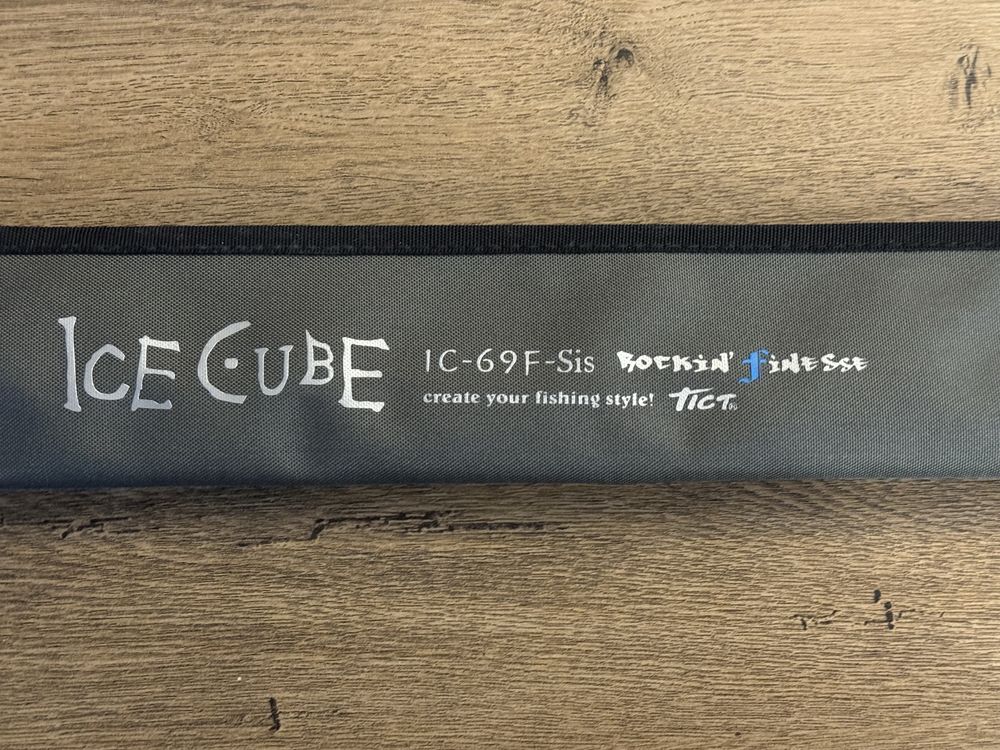 ICE CUBE IC-69F-Sis ROCKiN' FiNESSE
create your fishing style! TICT